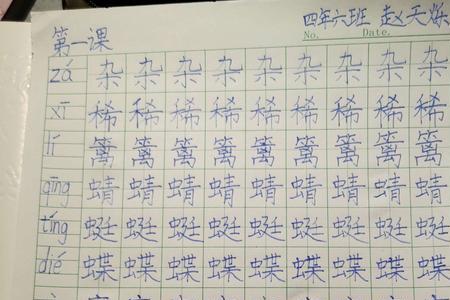 四年六班 赵天烁
第一课 No. Date.
zá 杂 杂 杂 杂 杂 杂 杂 杂 杂
xī 稀 稀 稀 稀 稀 稀 稀 稀 稀
lí 篱 篱 篱 篱 篱 篱 篱 篱 篱
qīng 蜻 蜻 蜻 蜻 蜻 蜻 蜻 蜻 蜻
tíng 蜓 蜓 蜓 蜓 蜓 蜓 蜓 蜓 蜓
dié 蝶 蝶 蝶 蝶 蝶 蝶 蝶 蝶 蝶